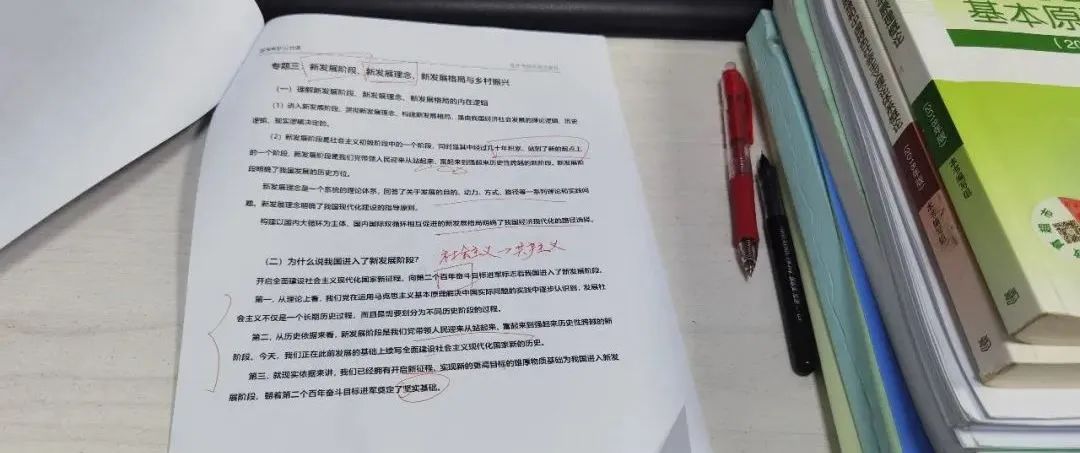 专题三：新发展阶段、新发展理念、新发展格局与乡村振兴
（一）理解新发展阶段、新发展理念、新发展格局的内在逻辑
（1）进入新发展阶段、贯彻新发展理念、构建新发展格局，是由我国经济社会发展的理论逻辑、历史
逻辑、现实逻辑决定的。
（2）新发展阶段是社会主义初级阶段中的一个阶段，同时是其中经过几十年积累、站到了新的起点上
的一个阶段。新发展阶段是我们党带领人民迎来从站起来、富起来到强起来历史性跨越的新阶段。新发展阶
段明确了我国发展的历史方位。
新发展理念是一个系统的理论体系，回答了关于发展的目的、动力、方式、路径等一系列理论和实践问
题。新发展理念明确了我国现代化建设的指导原则。
构建以国内大循环为主体、国内国际双循环相互促进的新发展格局明确了我国经济现代化的路径选择。
社会主义→共产主义
（二）为什么说我国进入了新发展阶段？
开启全面建设社会主义现代化国家新征程、向第二个百年奋斗目标进军标志着我国进入了新发展阶段。
第一，从理论上看，我们党在运用马克思主义基本原理解决中国实际问题的实践中逐步认识到，发展社
会主义不仅是一个长期历史过程，而且是需要划分为不同历史阶段的过程。
第二，从历史依据来看，新发展阶段是我们党带领人民迎来从站起来、富起来到强起来历史性跨越的新
阶段。今天，我们正在此前发展的基础上续写全面建设社会主义现代化国家新的历史。
第三，就现实依据来讲，我们已经拥有开启新征程、实现新的更高目标的雄厚物质基础为我国进入新发
展阶段，朝着第二个百年奋斗目标进军奠定了坚实基础。
基本原
(20
(2018年版)
本书编写组
(2018年版)
本书编写组